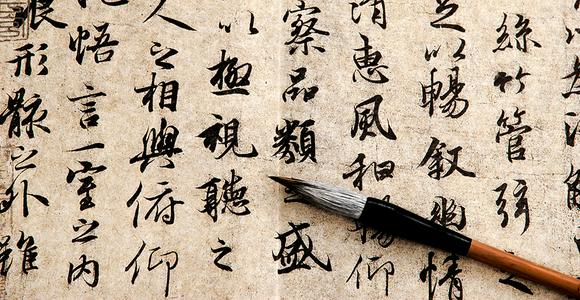 絲竹管弦之
以暢叙幽情
清惠風和暢仰
察品類之盛
以極視聽之
人之相與俯仰
悟言一室之內
浪形骸之外雖